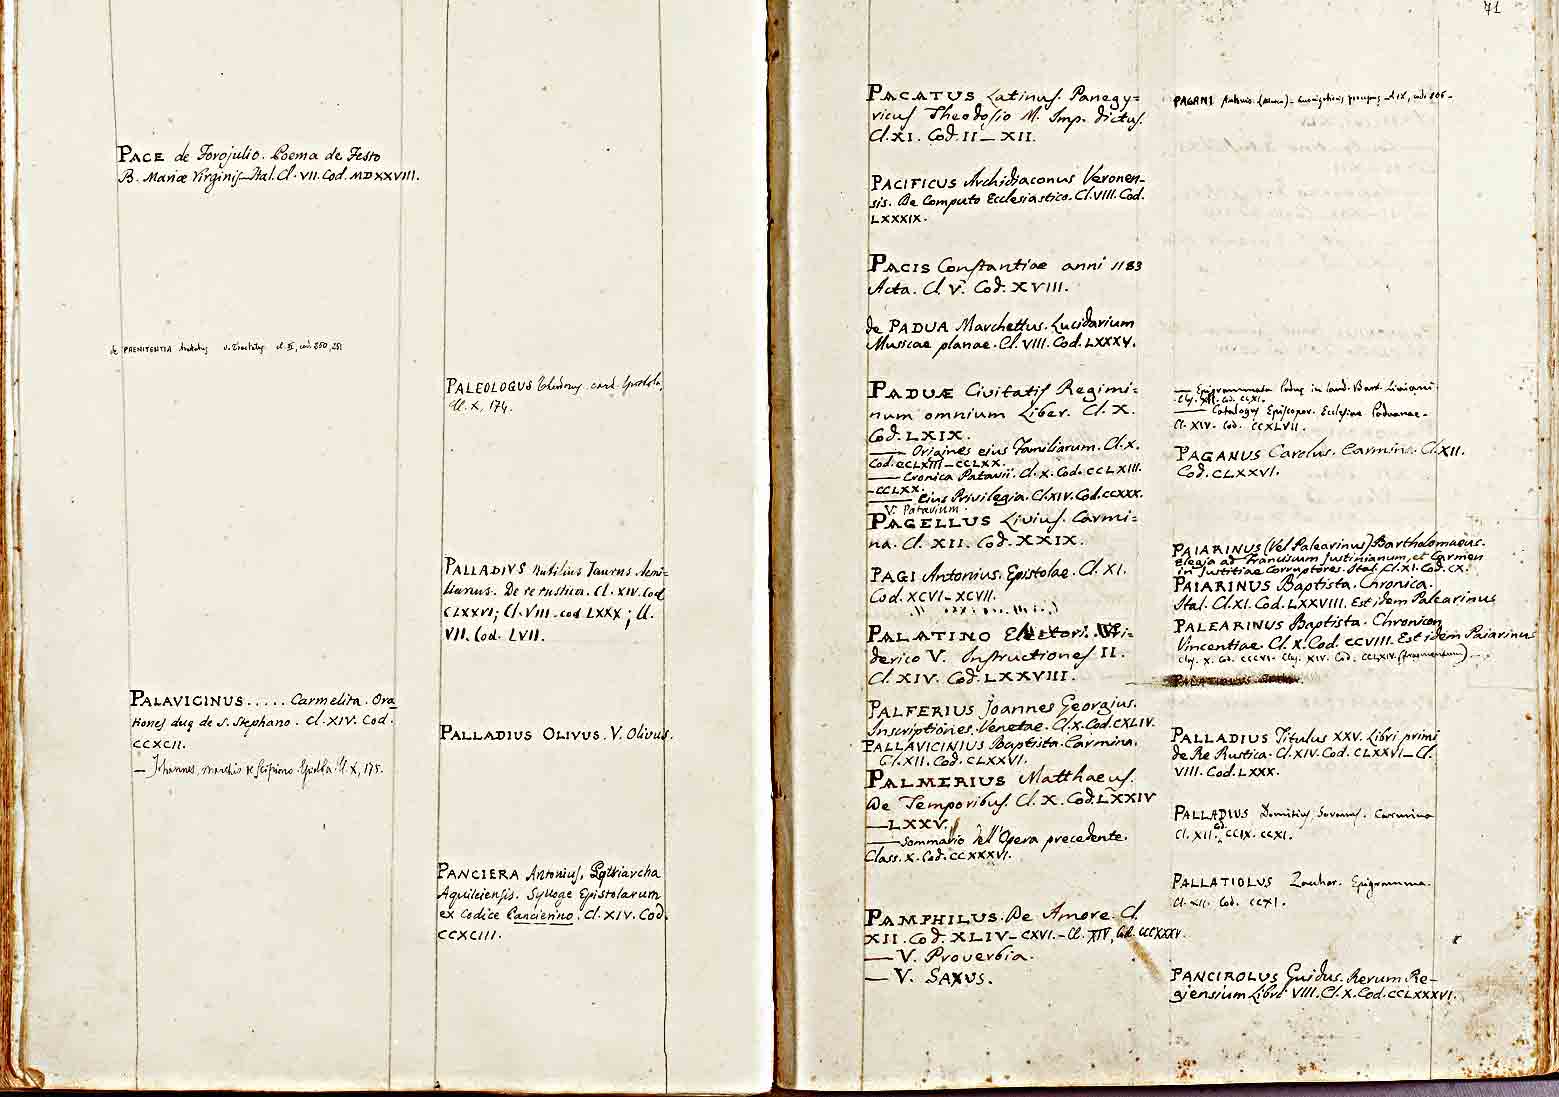 PACE de Forojulio. Poema de Festo
B. Mariæ Virginis_Ital. Cl. VII. Cod. MDXXVIII.
de PAENITENTIA tractatus v. Tractatus cl. II, cod. 250, 251
PALAVICINUS ..... Carmelita. Ora
tiones duę de S. Stephano. Cl. XIV. Cod.
CCXCII.
— Johannes, marchio Cl. X, 175.
PALEOLOGUS card. Epistola,
Cl. X, 174.
PALLADIVS Rutilius Taurus Aemi-
lianus. De re rustica. Cl. XIV. Cod
CLXXVI; Cl. VIII. cod LXXX; Cl.
VII. Cod. LVII.
PALLADIUS OLIVUS. V. Olivus.
PANCIERA Antonius, Patriarcha
Aquileiensis. Sylloge Epistolarum
ex Codice Pancierino. Cl. XIV. Cod.
CCXCIII.
71
PACATUS Latinus. Panegy=
ricus Theodosio M. Imp. dictus.
Cl. XI. Cod. II_XII.
PACIFICUS Archidiaconus Veronen-
sis. De Computo Ecclesiastico. Cl. VIII. Cod.
LXXXIX.
PACIS Constantiae anni 1183
Acta. Cl. V. Cod. XVIII.
de PADUA Marchettus. Lucidarium
Musicae planae. Cl. VIII. Cod. LXXXV.
PADUÆ Civitatis Regimi=
num omnium Liber. Cl. X.
Cod. LXIX.
— Origines ejus Familiarum. Cl. X.
Cod. CCLXIII_CCLXX.
— Cronica Patavii. Cl. X. Cod. CCLXIII.
-CCLXX.
— Ejus Privilegia. Cl. XIV. Cod. CCXXX.
V. Patavium.
PAGELLUS Livius. Carmi=
na. Cl. XII. Cod. XXIX.
PAGI Antonius. Epistolae. Cl. XI.
Cod. XCVI-XCVII.
PALATINO Electori
derico V. Instructiones II.
Cl. XIV. Cod. LXXVIII.
PALFERIUS Joannes Georgius.
Inscriptiones Venetae. Cl. X. Cod. CXLIV.
PALLAVICINIUS Baptista. Carmina.
Cl. XII. Cod. CLXXVI.
PALMERIUS Matthaeus.
De Temporibus. Cl. X. Cod. LXXIV
—LXXV.
— Sommario dell'Opera precedente.
Class. X. Cod. CCXXXVI.
PAMPHILUS. De Amore. Cl.
XII. Cod. XLIV_CXVI.-Cl. XIV, Cod. CCXXXV.
— V. Proverbia.
— V. SAXUS.
PAGANI Antonio
— Epigrammata in laud. Bart. Liviani.
Cod. CLXI.
— Catalogus Episcopor. Ecclesiae Paduanae.
Cl. XIV. Cod. CCXLVII.
PAGANUS Carolus. Carmina. Cl. XII.
Cod. CLXXVI.
PAIARINUS (Vel Palearinus) Bartholomaeus.
Elegia ad Franciscum Justinianum, et Carmen
in Justitiae Corruptores. Ital. Cl. XI. Cod. CX.
PAIARINUS Baptista. Chronica.
Ital. Cl. XI. Cod. LXXVIII. Est idem Palearinus
PALEARINUS Baptista. Chronicon
Vincentiae. Cl. X. Cod. CCVIII. Est idem Paiarinus
Clas. X. Cod. CCCVI. Clas. XIV. Cod. CCLXIV. (fragmentum)
PALLADIUS Titulus XXV. Libri primi
de Re Rustica. Cl. XIV. Cod. CLXXVI_Cl.
VIII. Cod. LXXX.
PALLADIUS Domitius Soranus. Carmina
Cl. XII. Cod. CCIX. CCXI.
PALLATIOLUS Zachar. Epigramma.
Cl. XII. Cod. CCXI.
PANCIROLUS Guidus. Rerum Re-
giensium Libri VIII. Cl. X. Cod. CCLXXXVI.